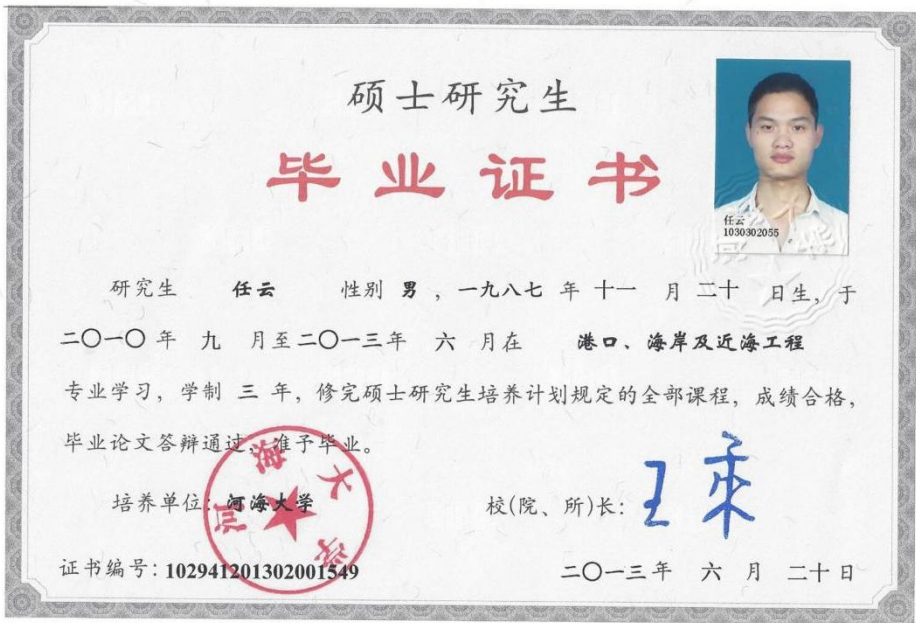 硕士研究生
毕业证书
任云
1030302055
研究生 任云 性别 男 ，一九八七 年 十一 月 二十 日生，于
二〇一〇 年 九 月至二〇一三年 六 月在 港口、海岸及近海工程
专业学习，学制 三 年，修完硕士研究生培养计划规定的全部课程，成绩合格，
毕业论文答辩通过，准予毕业。
培养单位：河海大学
河海大学
校(院、所)长：王乘
证书编号：102941201302001549
二〇一三年 六 月 二十日